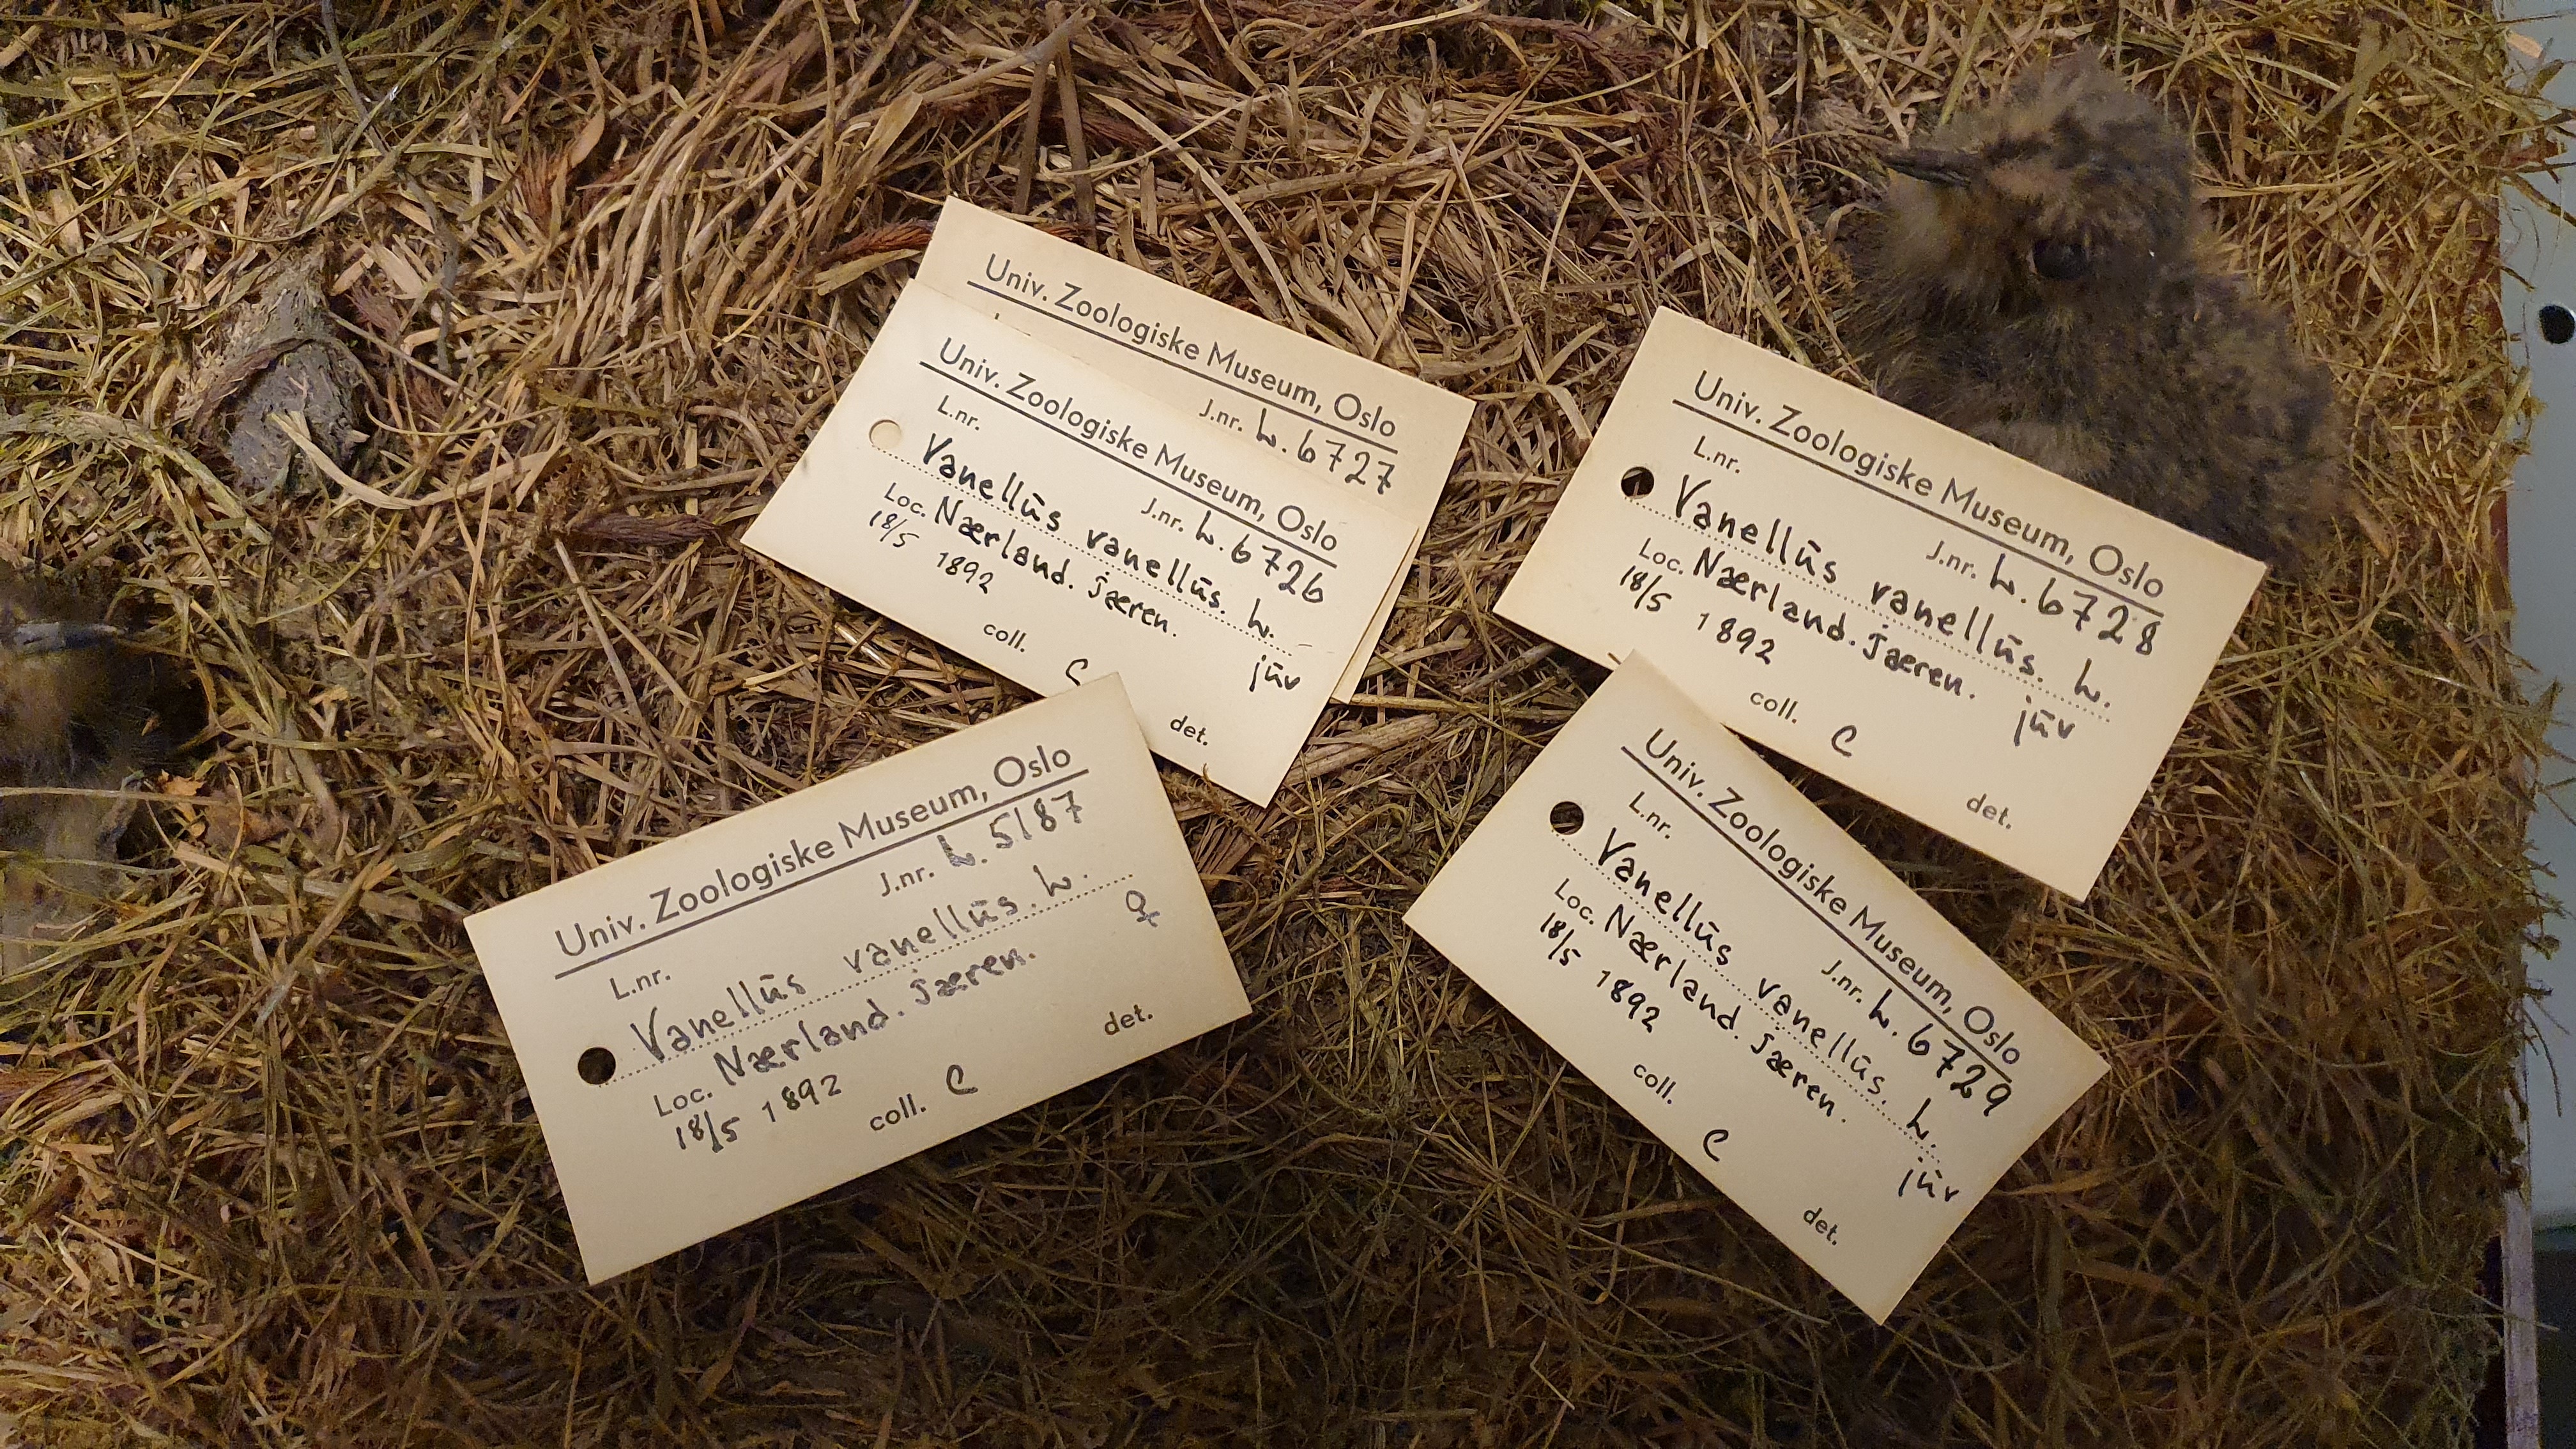 Univ. Zoologiske Museum, Oslo
J.nr. L. 6727
Univ. Zoologiske Museum, Oslo
L.nr. J.nr. L. 6726
Vanellūs vanellūs. L.
Loc. Nærland. Jæren.
18/5 1892 jūv
coll. C det.
Univ. Zoologiske Museum, Oslo
L.nr. J.nr. L. 6728
Vanellūs vanellūs. L.
Loc. Nærland. Jæren.
18/5 1892 jūv
coll. C det.
Univ. Zoologiske Museum, Oslo
L.nr. J.nr. L. 5187
Vanellūs vanellūs. L.
Loc. Nærland. Jæren. ♀
18/5 1892
coll. C det.
Univ. Zoologiske Museum, Oslo
L.nr. J.nr. L. 6729
Vanellūs vanellūs. L.
Loc. Nærland. Jæren.
18/5 1892 jūv
coll. C det.